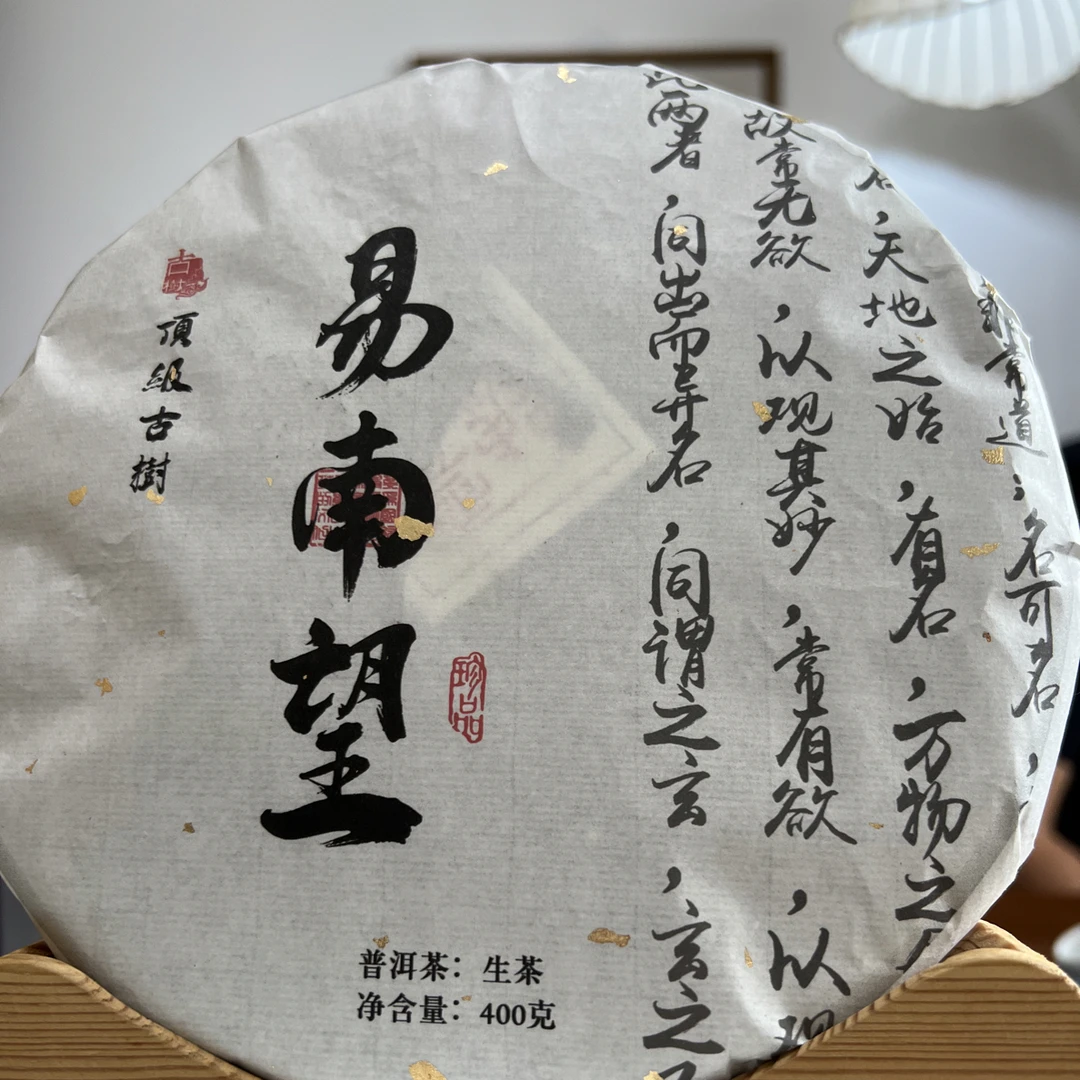 非常道，名可名，
名，天地之始，有名，万物之
故常无欲，以观其妙，常有欲，以观
此两者，同出而异名，同谓之玄，玄之
易南望
珍品
古樹
頂級古樹
普洱茶：生茶
净含量：400克